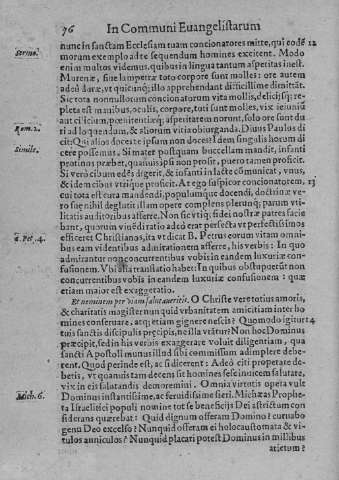 76 In Communi Euangelistarum
nunc in sanctam Ecclesiam tuam concionatores mitte, qui eodē 12
Sermo. moram exemplo ad te sequendum homines excitent. Modo
enim multos videmus, quibus in lingua tantum asperitas inest.
Murenæ, siue lampetræ toto corpore sunt molles: ore autem
adeò duræ, vt quicunq; illo apprehendant difficillimè dimittāt.
Sic tota nonnullorum concionatorum vita mollis, deliciisq; re-
pleta est: manibus, oculis, corpore, toti sunt molles, vix ieiuniū
aut cilicium, pœnitentiæq; asperitatem norunt, solo ore sunt du
Rom. 2. ri ad loquendum, & aliorum vitia obiurganda. Diuus Paulus di
cit: Qui alios doces te ipsum non doces? Idem singulis horum di
Simile. cere possemus. Si mater postquam buccellam mandit, infanti
protinus præbet, quamuis ipsi non prosit, puero tamen proficit.
Si verò cibum edēs digerit, & infanti in lacte communicat, vnus,
& idem cibus vtriq; proficit. At ego suspicor concionatorem, 13
cui tota est cura mandendi, populumque docendi, doctrinæ ve-
rò suę nihil deglutit illam opere complens plerunq; parum vti-
litatis auditoribus afferre. Non sic vtiq; fidei nostræ patres facie
bant, quorum vita ad ratio adeò erat perfecta vt perfectissimos
1. Pet. 4. efficeret Christianos, ita vt dicat B. Petrus eorum vitam omni-
bus eam videntibus admirationem afferre, his verbis: In quo
admirantur non concurrentibus vobis in eandem luxuriæ con-
fusionem. Vbi alia translatio habet: In quibus obstupuerūt non
concurrentibus vobis in eandem luxuriæ confusionem: quæ
etiam maior est exaggeratio.
Et neminem per viam salutaueritis. O Christe vere totius amoris,
& charitatis magister nun quid vrbanitatem amicitiam inter ho
mines conseruare, atq; etiam gignere nescis? Quomodo igitur 14
tuis sanctis discipulis pręcipis, ne illa vtātur? Non hoc Dominus
præcipit, sed in his verbis exaggerare voluit diligentiam, qua
sancti Apostoli munus illud sibi commissum adimplere debe-
rent. Quod perinde est, ac si dicerent: Adeò citi properare de-
betis, vt quanuis tam decens sit homines sese inuicem salutare,
vix in eis salutandis demoremini. Omnia virtutis opera vult
Mich. 6. Dominus instantissime, ac feruidissime fieri. Michæas Prophe-
ta Israelitici populi nomine tot se beneficijs Dei astrictum con
siderans quærebat: Quid dignum offeram Domino? curuabo
genu Deo excelso? Nunquid offeram ei holocaustomata & vi-
tulos anniculos? Nunquid placari potest Dominus in millibus
arietum?